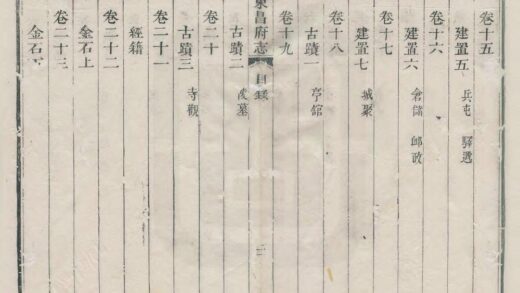 卷十五
建置五 兵屯 驛遞
卷十六
建置六 倉儲 郵政
卷十七
建置七 城聚
卷十八
古蹟一 亭館
卷十九
東昌府志 目錄 二
古蹟二 陵墓
卷二十
古蹟三 寺觀
卷二十一
經籍
卷二十二
金石上
卷二十三
金石下